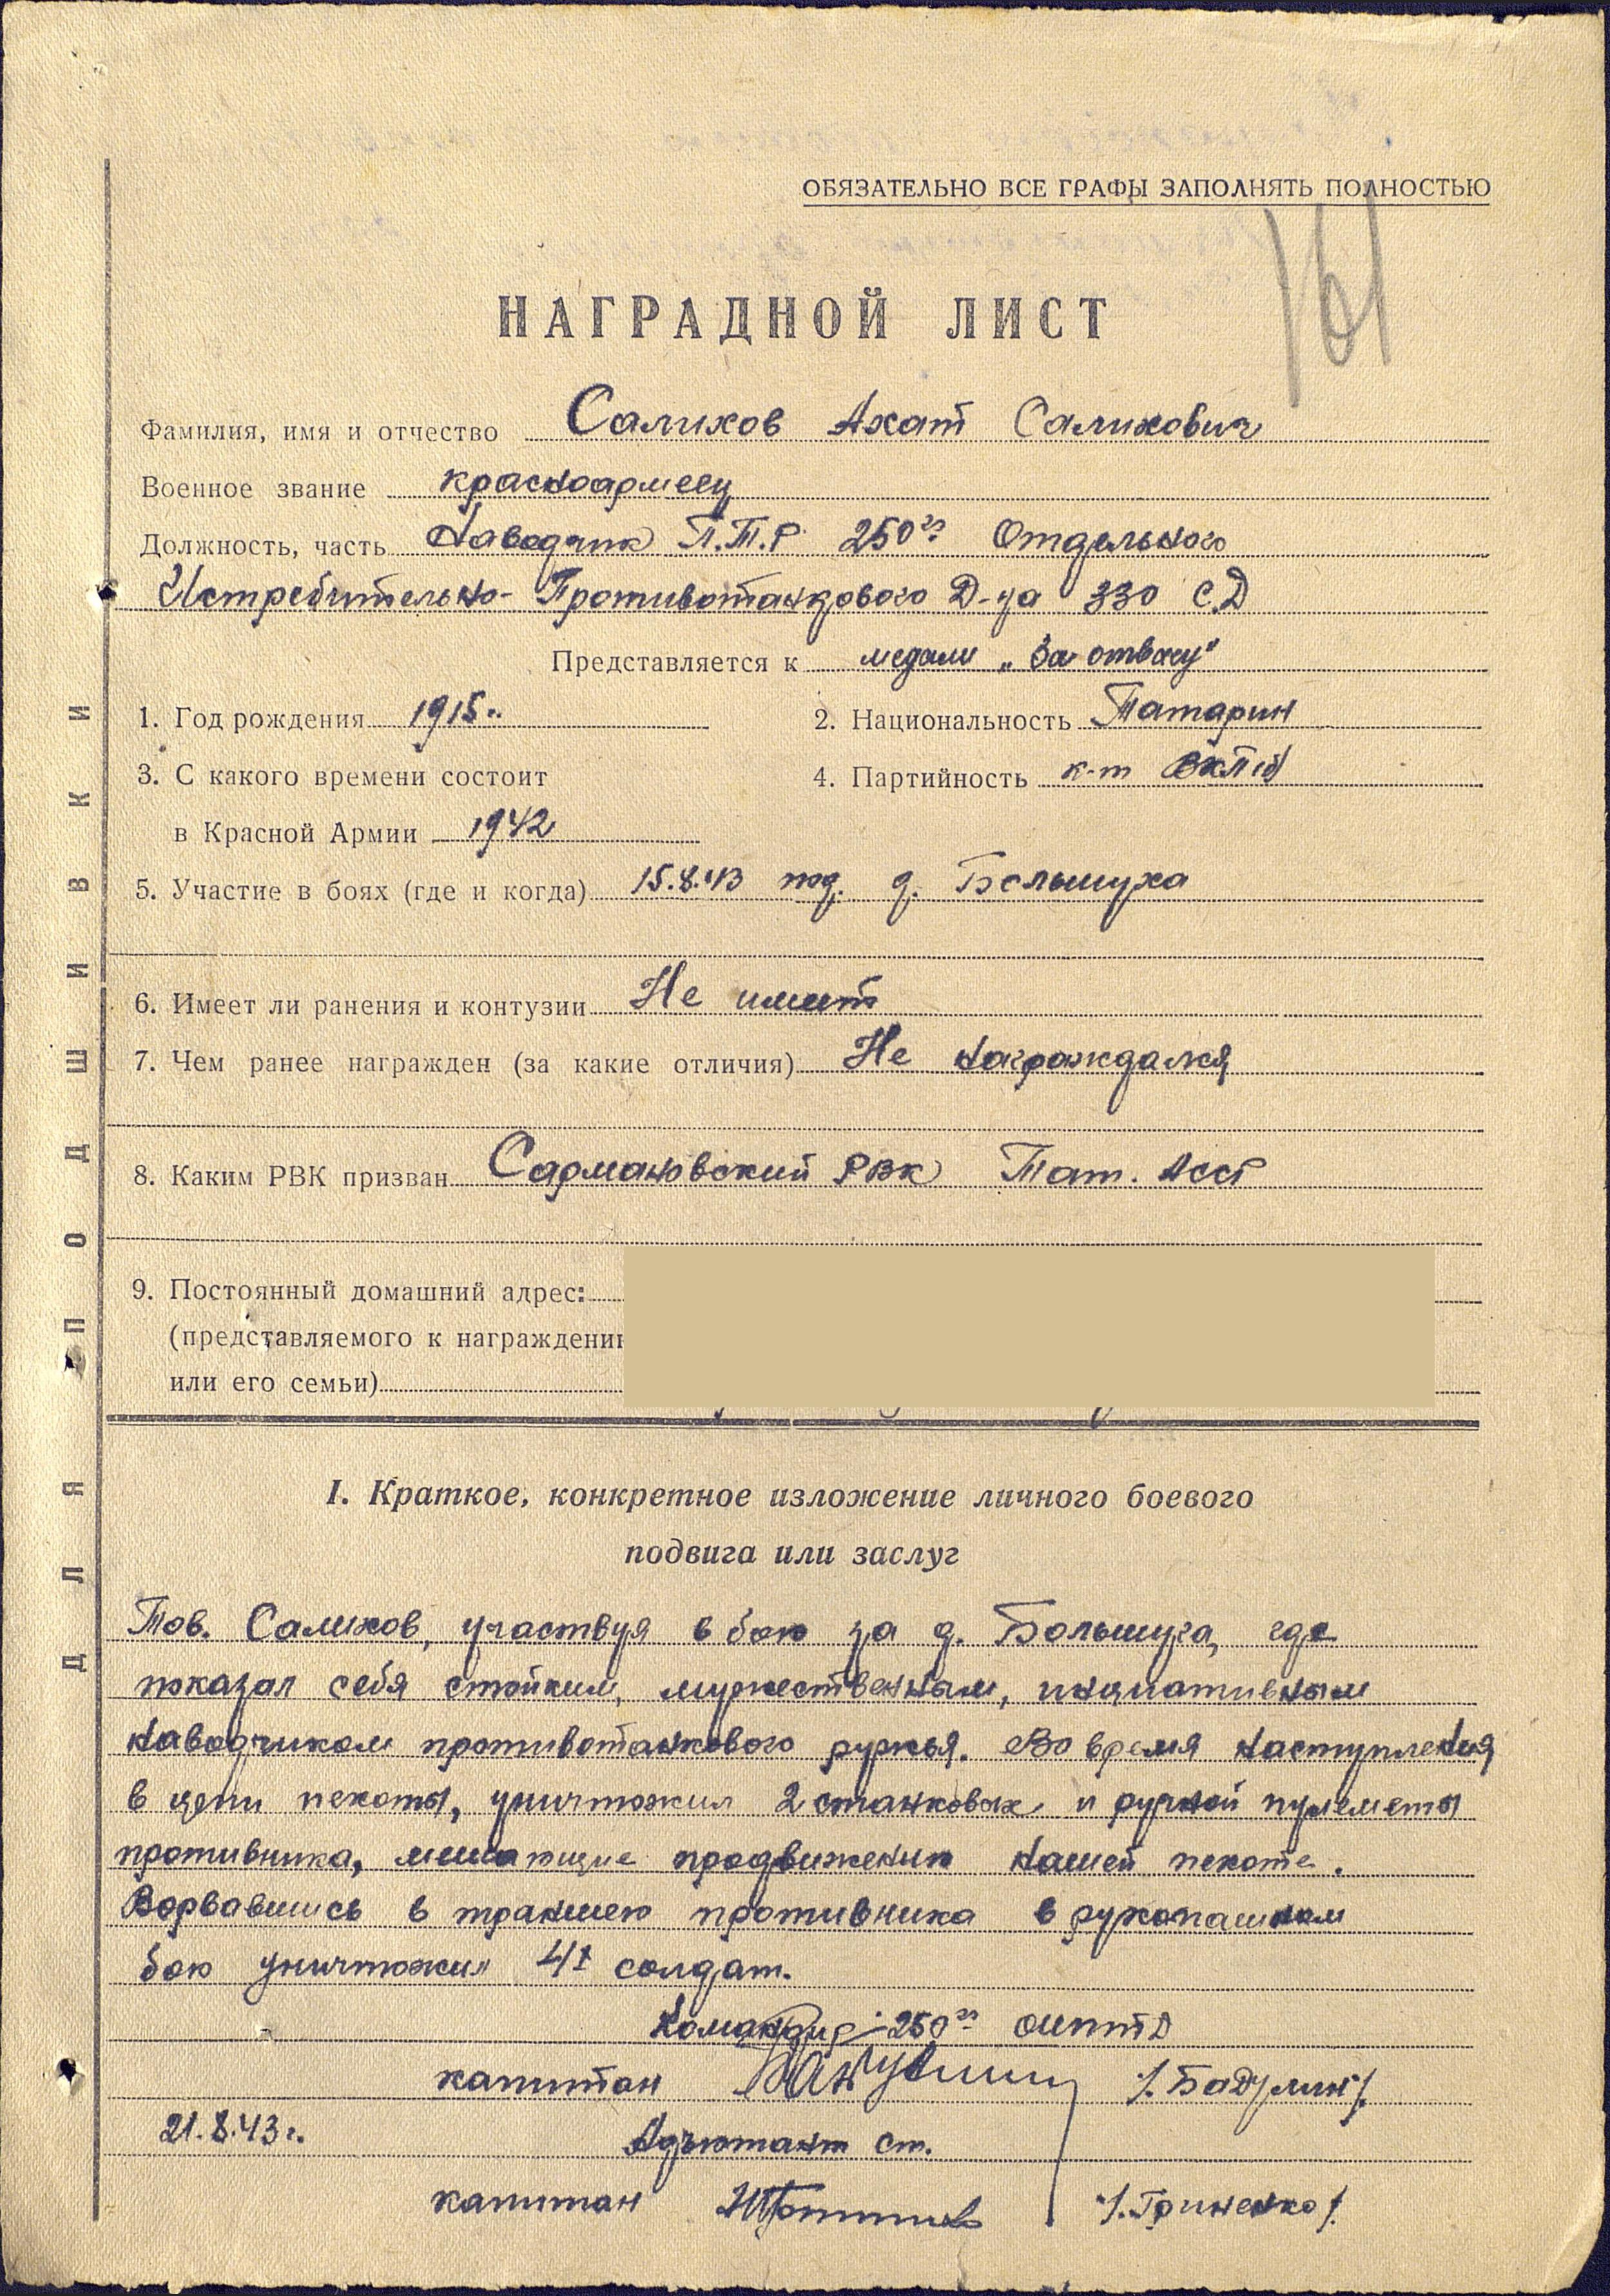 ОБЯЗАТЕЛЬНО ВСЕ ГРАФЫ ЗАПОЛНЯТЬ ПОЛНОСТЬЮ
161
НАГРАДНОЙ ЛИСТ
Фамилия, имя и отчество Салихов Ахат Салихович
Военное звание красноармеец
Должность, часть Наводчик П.Т.Р 250го Отдельного
Истребительно-Противотанкового Д-на 330 С.Д
Представляется к медали „За отвагу"
1. Год рождения 1915г.
2. Национальность Татарин
3. С какого времени состоит
в Красной Армии 1942
4. Партийность к-т ВКП(б)
5. Участие в боях (где и когда) 15.8.43 под. д. Большуха
6. Имеет ли ранения и контузии Не имеет
7. Чем ранее награжден (за какие отличия) Не награждался
8. Каким РВК призван Сармановский РВК Тат. АССР
9. Постоянный домашний адрес:
(представляемого к награждени
или его семьи)
I. Краткое, конкретное изложение личного боевого
подвига или заслуг
Тов. Салихов, участвуя в бою за д. Большуха, где
показал себя стойким, мужественным, инциативным
наводчиком противотанкового ружья. Во время наступления
в цепи пехоты, уничтожил 2 станковых и ручной пулеметы
противника, мешающие продвижению нашей пехоте.
Ворвавшись в траншею противника в рукопашном
бою уничтожил 4х солдат.
Командир 250го ОИПТД
капитан /.Бадулин/.
21.8.43г.
Адъютант ст.
капитан /.Гриненко/.
ДЛЯ ПОДШИВКИ